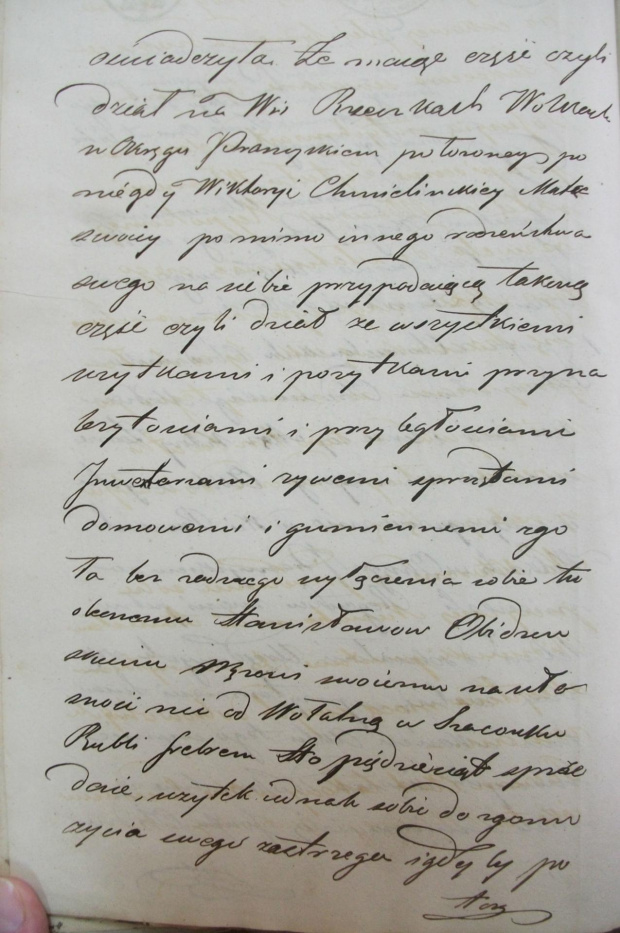 oswiadczyła. Że maiąc część czyli
dział na Wsi Rzeczkach Wolskich
w Okręgu Przasnyskiem położoney po
niegdy Wiktoryi Chmielinskiey Matce
swoiey pomimo innego rodzeństwa
swego na siebie przypadaiącą takową
część czyli dział ze wszystkiemi
użytkami i pożytkami przyna
leżytosciami i przyległosciami
Jnwetarzami żywemi sprzętami
domowemi i gumiennemi zgo
ła bez żadnego wyłączenia sobie tu
obecnemu Stanisławow
Mężowi swoiemu na włas
ności nie od Wołalną w Szacunku
Rubli srebrem Sto pięćdziesiąt sprze
daie, użytek iednak sobie do zgonu
życia swego zastrzega i gdy by po